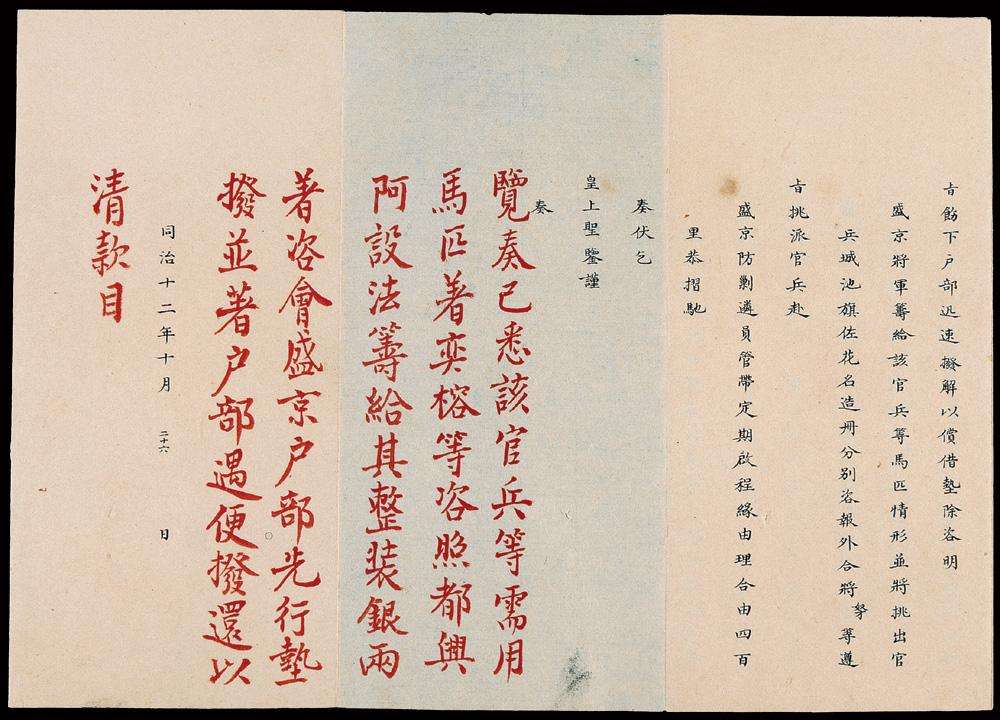 旨飭下户部迅速撥解以償借墊除咨明
盛京將軍籌給該官兵等馬匹情形並將挑出官
兵城池旗佐花名造冊分別咨報外合將奴才等遵
旨挑派官兵赴
盛京防剿遴員管帶定期啟程緣由理合由四百
里恭摺馳
奏伏乞
皇上聖鑒謹
奏
覽奏已悉該官兵等需用
馬匹著奕榕等咨照都興
阿設法籌給其整装銀兩
著咨會盛京户部先行墊
撥並著户部遇便撥還以
清款目
同治十二年十月二十六日